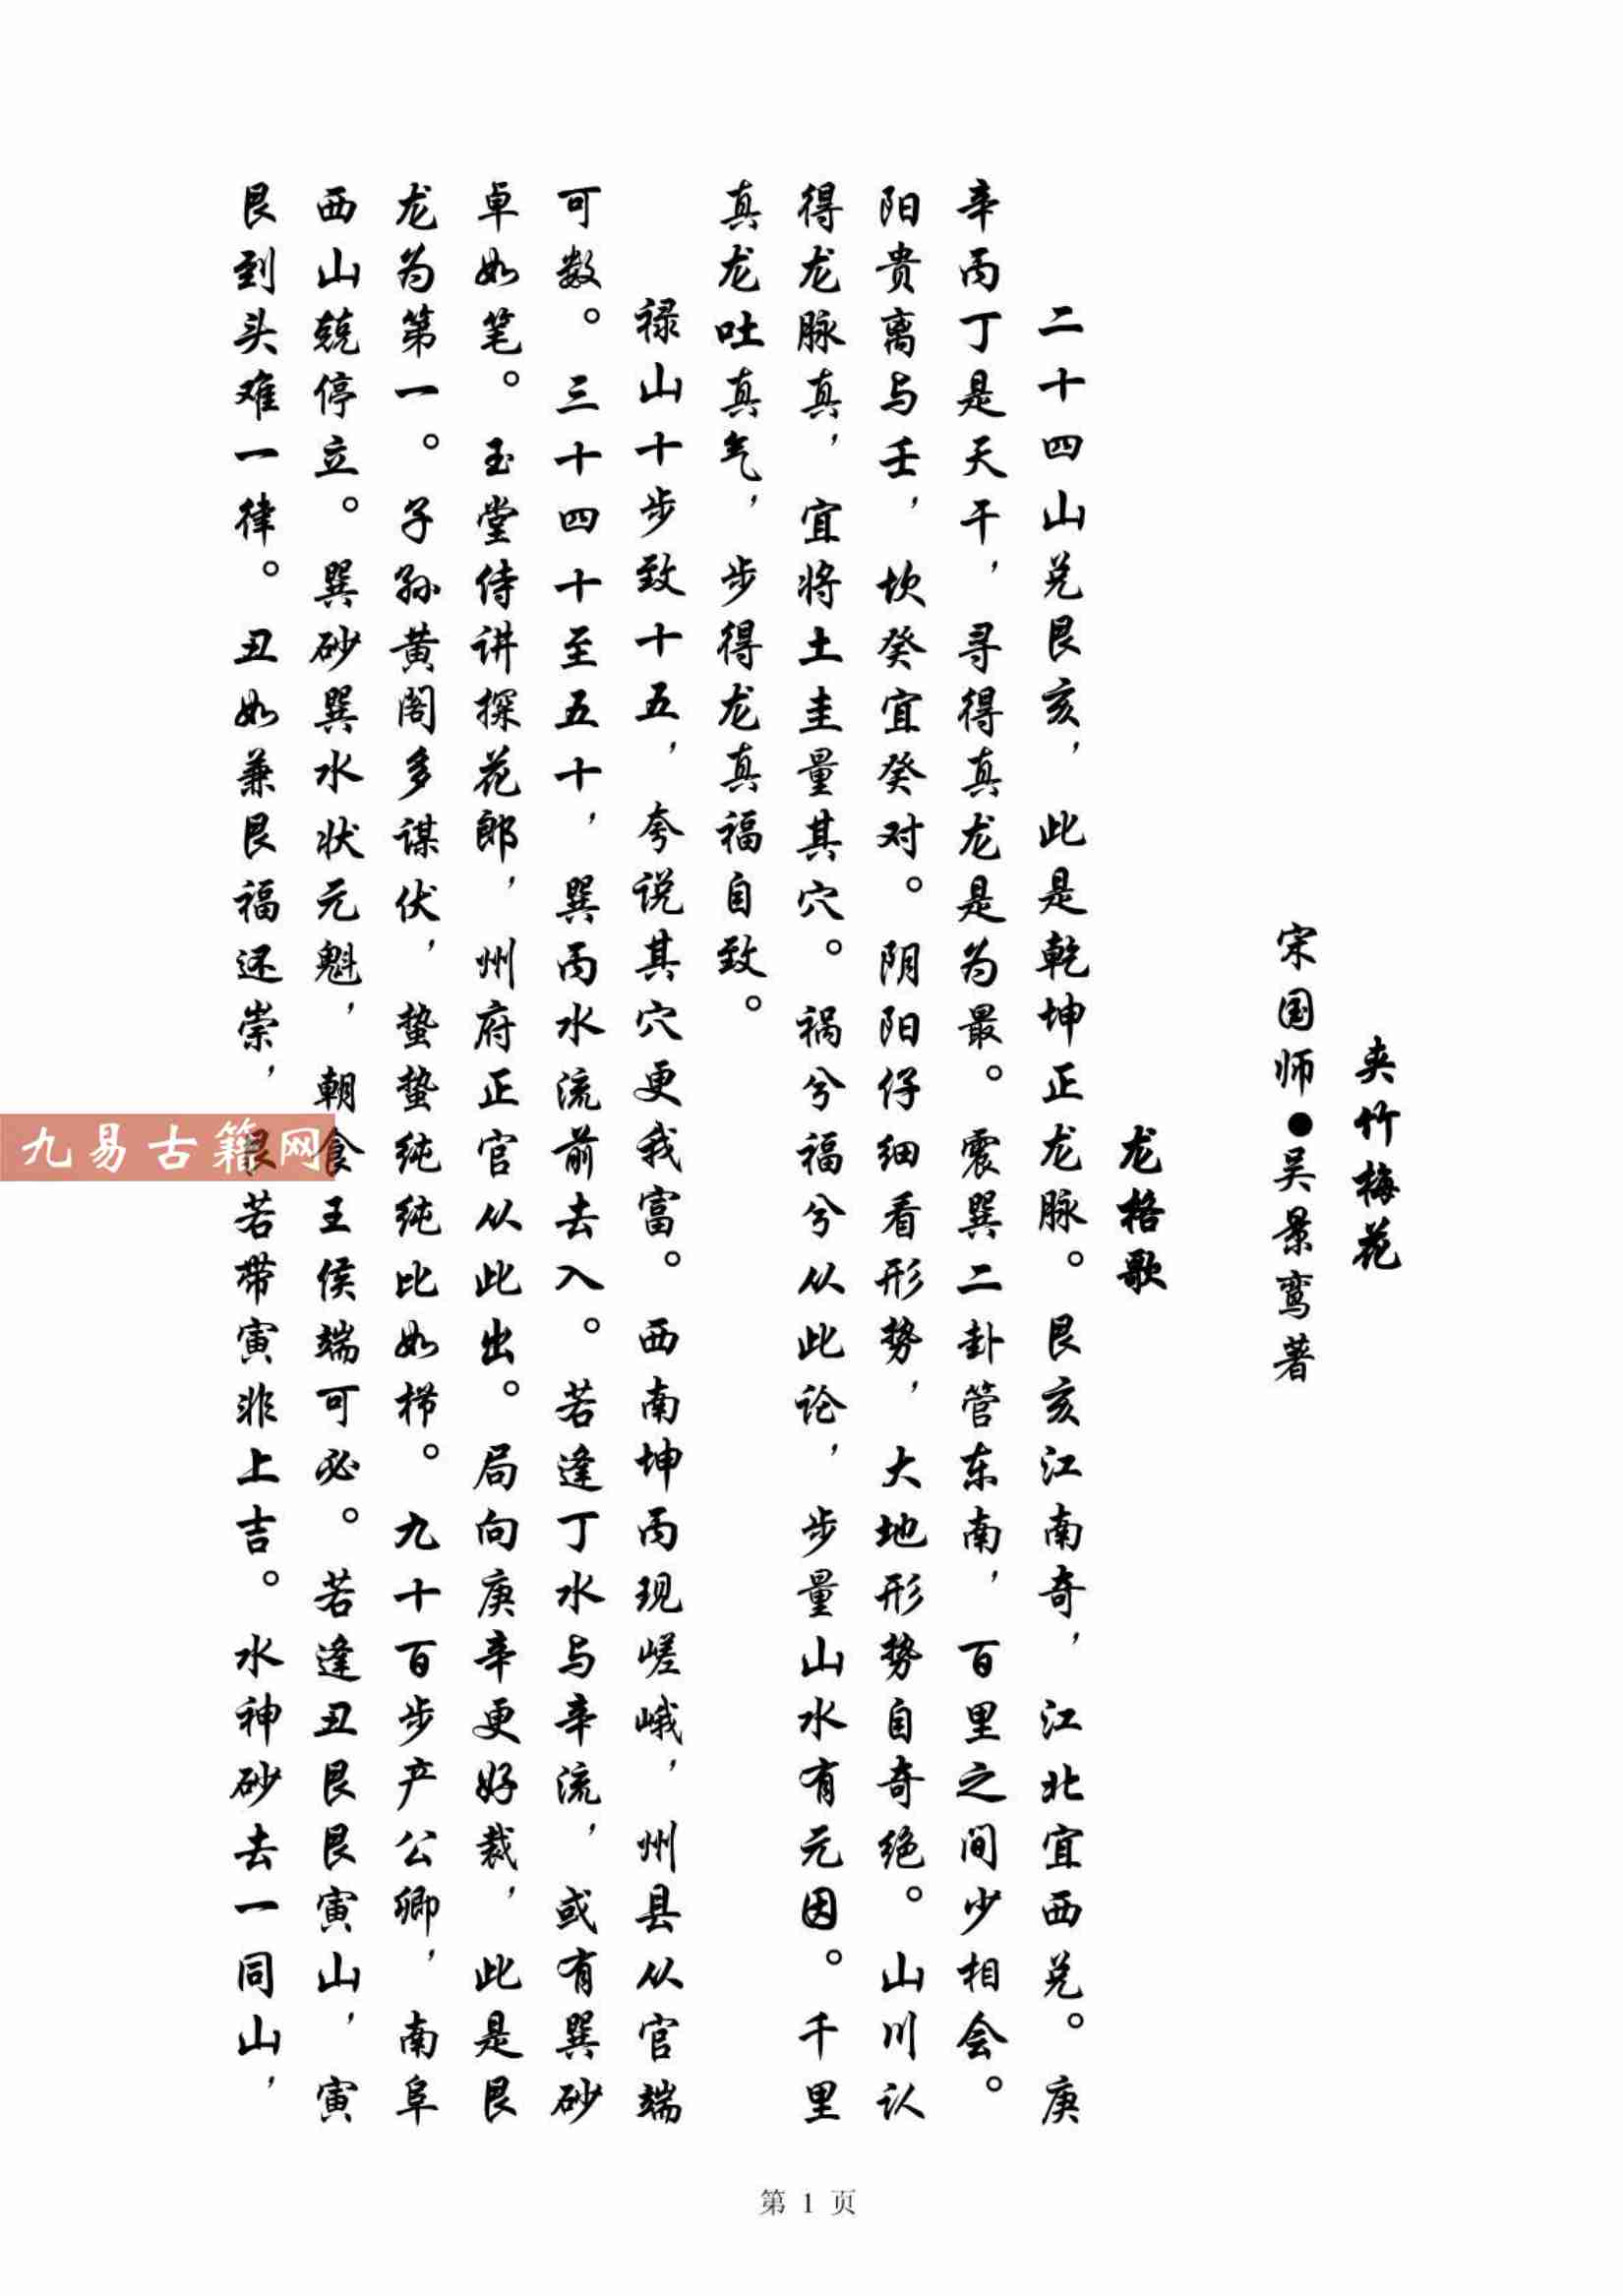 夹竹梅花
宋国师●吴景鸾著
龙格歌
二十四山兑艮亥，此是乾坤正龙脉。艮亥江南奇，江北宜西兑。庚
辛丙丁是天干，寻得真龙是为最。震巽二卦管东南，百里之间少相会。
阳贵离与壬，坎癸宜癸对。阴阳仔细看形势，大地形势自奇绝。山川认
得龙脉真，宜将土圭量其穴。祸兮福兮从此论，步量山水有元因。千里
真龙吐真气，步得龙真福自致。
禄山十步致十五，夸说其穴更我富。西南坤丙现嵯峨，州县从官端
可数。三十四十至五十，巽丙水流前去入。若逢丁水与辛流，或有巽砂
卓如笔。玉堂侍讲探花郎，州府正官从此出。局向庚辛更好裁，此是艮
龙为第一。子孙黄阁多谋伏，蛰蛰纯纯比如栉。九十百步产公卿，南阜
西山兢停立。巽砂巽水状元魁，朝食王侯端可必。若逢丑艮艮寅山，寅
艮到头难一律。丑如兼艮福还崇，艮若带寅非上吉。水神砂去一同山，
九易古籍网
第 1 页